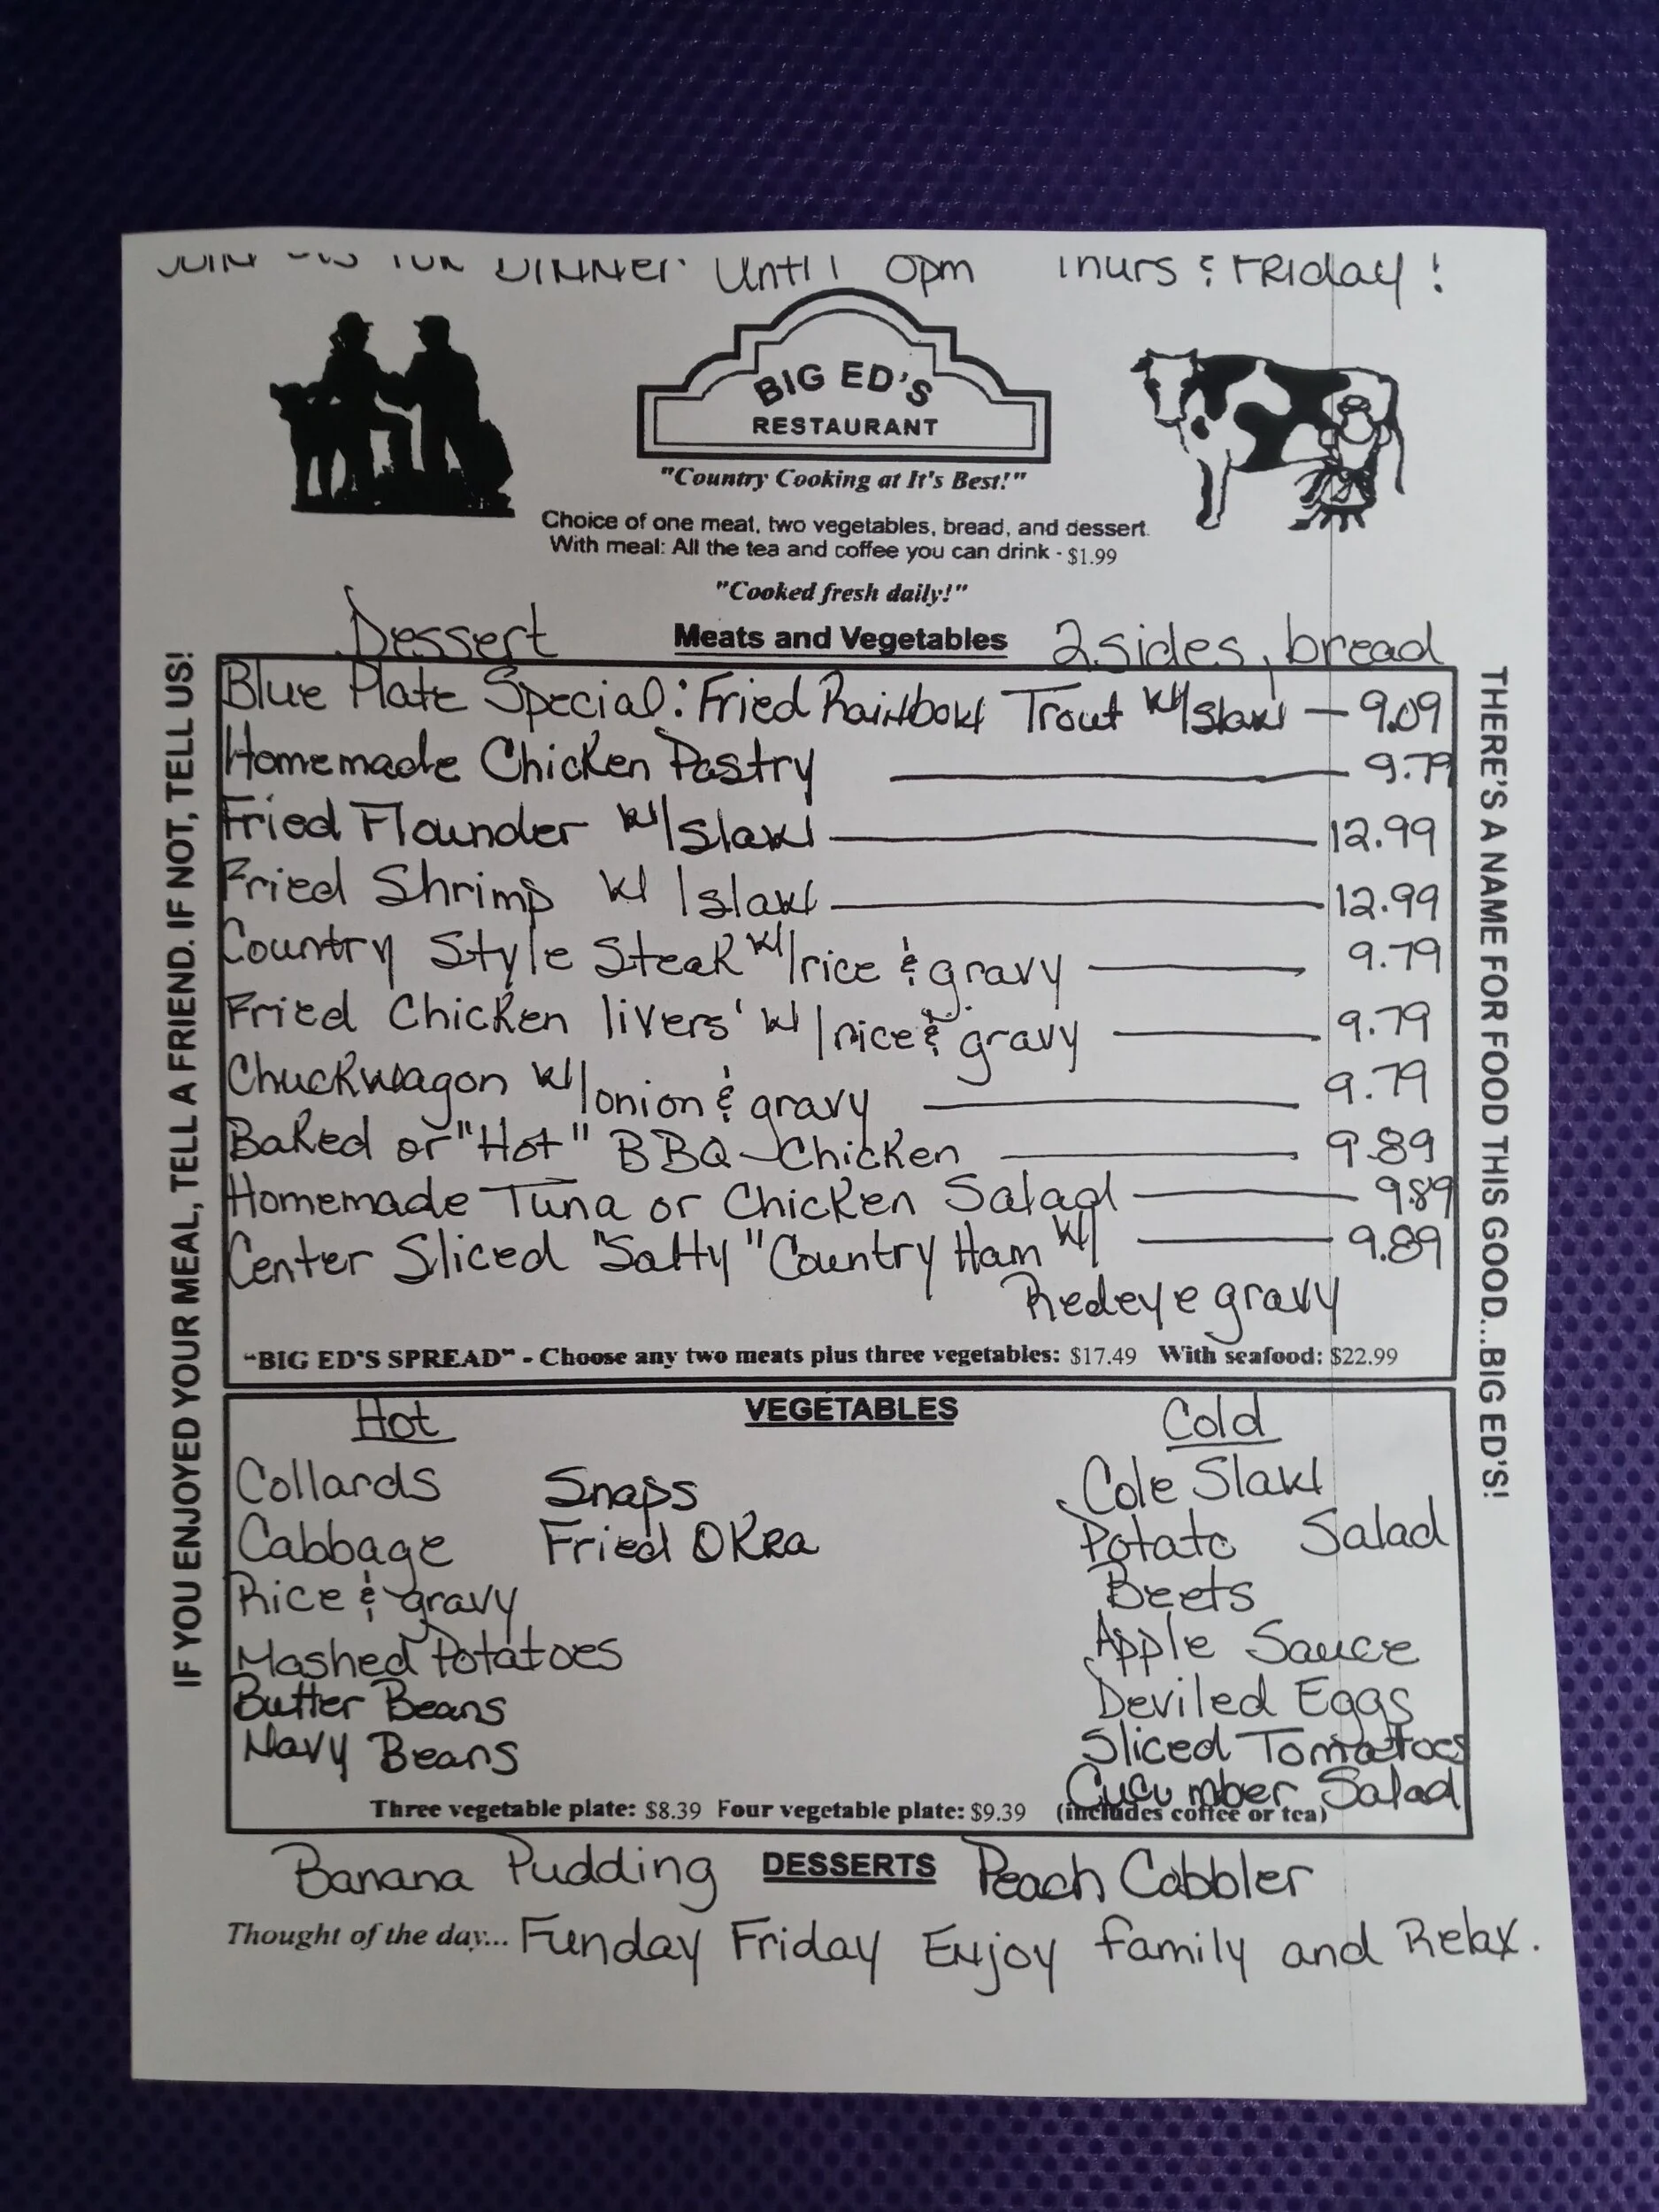 JOIN US FOR DINNER Until pm Thurs & FRIday!
BIG ED'S
RESTAURANT
"Country Cooking at It's Best!"
Choice of one meat, two vegetables, bread, and dessert.
With meal: All the tea and coffee you can drink - $1.99
"Cooked fresh daily!"
Dessert Meats and Vegetables 2 sides, bread
Blue Plate Special: Fried Rainbow Trout w/slaw — 9.09
Homemade Chicken Pastry — 9.79
Fried Flounder w/slaw — 12.99
Fried Shrimp w/slaw — 12.99
Country Style Steak w/rice & gravy — 9.79
Fried Chicken livers' w/rice & gravy — 9.79
Chuckwagon w/onion & gravy — 9.79
Baked or "Hot" BBQ Chicken — 9.89
Homemade Tuna or Chicken Salad — 9.89
Center Sliced "Salty" Country Ham w/ — 9.89
Redeye gravy
"BIG ED'S SPREAD" - Choose any two meats plus three vegetables: $17.49 With seafood: $22.99
Hot VEGETABLES Cold
Collards Snaps Cole Slaw
Cabbage Fried OKRA Potato Salad
Rice & gravy Beets
Mashed Potatoes Apple Sauce
Butter Beans Deviled Eggs
Navy Beans Sliced Tomatoes
Cucumber Salad
Three vegetable plate: $8.39 Four vegetable plate: $9.39 (includes coffee or tea)
Banana Pudding DESSERTS Peach Cobbler
Thought of the day... Funday Friday Enjoy family and Relax.
IF YOU ENJOYED YOUR MEAL, TELL A FRIEND. IF NOT, TELL US!
THERE'S A NAME FOR FOOD THIS GOOD...BIG ED'S!